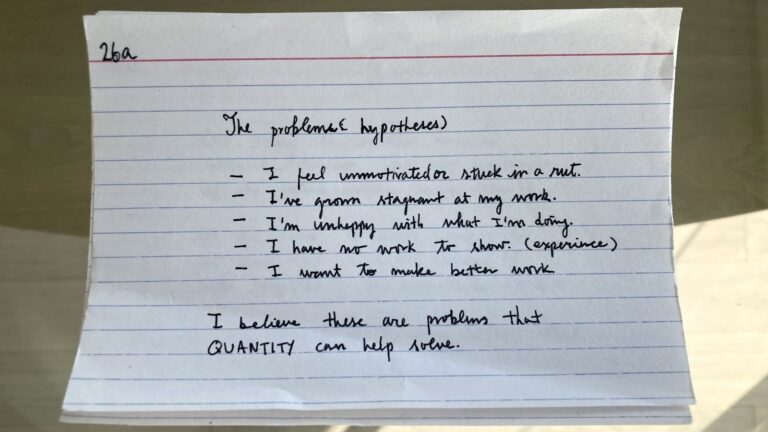 26a
The problems (hypotheses)
- I feel unmotivated or stuck in a rut.
- I've grown stagnant at my work.
- I'm unhappy with what I'm doing.
- I have no work to show. (experience)
- I want to make better work
I believe these are problems that
QUANTITY can help solve.